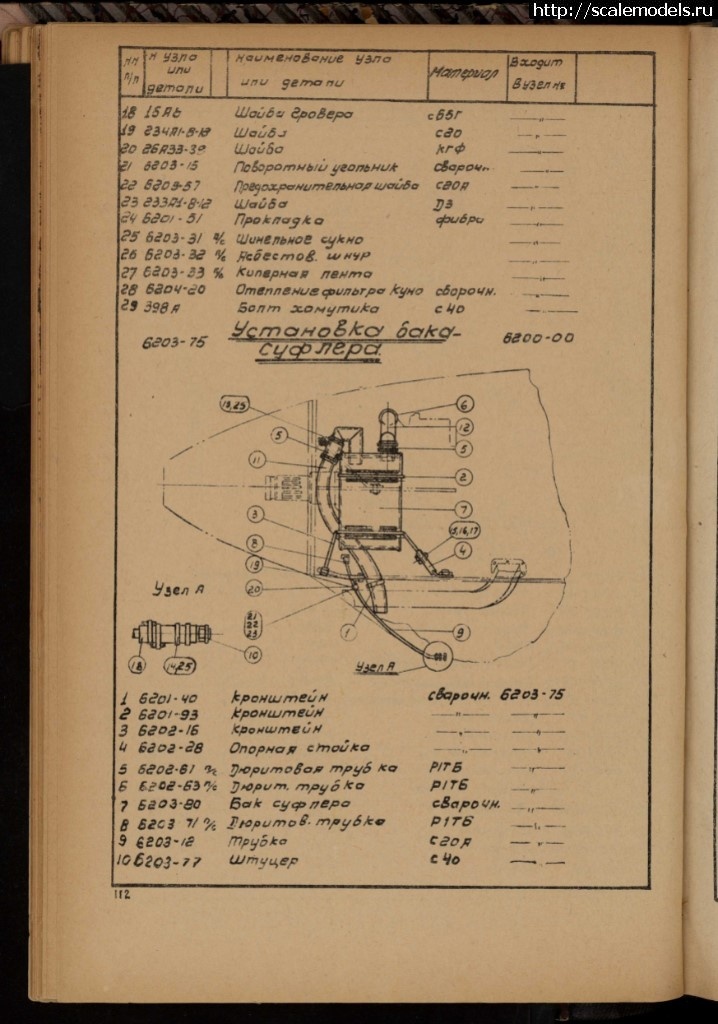 http://scalemodels.ru
NN п/п N узла или детали наименование узла или детали Материал Входит в узел NN
18 15АБ Шайба гровера с65г —"—
19 234А1-8-18 Шайба с20 —"—
20 Шайба кгф —"—
21 6203-15 Поворотный угольник сварочн. —"—
22 6203-57 Предохранительная шайба с20А —"—
23 233А1-8-12 Шайба Д3 —"—
24 6201-51 Прокладка фибра —"—
25 6203-31 ч/с Шинельное сукно —"—
26 6203-32 ч/с Асбестов. шнур —"—
27 6203-33 ч/с Киперная лента —"—
28 6204-20 Отепление фильтра Куно сварочн. —"—
29 398А Болт хомутика с40 —"—
6203-75 Установка бака- 6200-00
суфлера
13,25
5
11
3
8
19
20
21
22
23
1
6
12
5
2
7
15,16,17
4
9
Узел А
Узел А
18
14,25
10
1 6201-40 Кронштейн сварочн. 6203-75
2 6201-93 Кронштейн —"— —"—
3 6202-16 Кронштейн —"— —"—
4 6202-28 Опорная стойка —"— —"—
5 6202-61 ч/с Дюритовая трубка Р1ТБ —"—
6 6202-63 ч/с Дюрит. трубка Р1ТБ —"—
7 6203-80 Бак суфлера сварочн. —"—
8 6203 71 ч/с Дюритов. трубка Р1ТБ —"—
9 6203-12 Трубка с20А —"—
10 6203-77 Штуцер с40 —"—
112